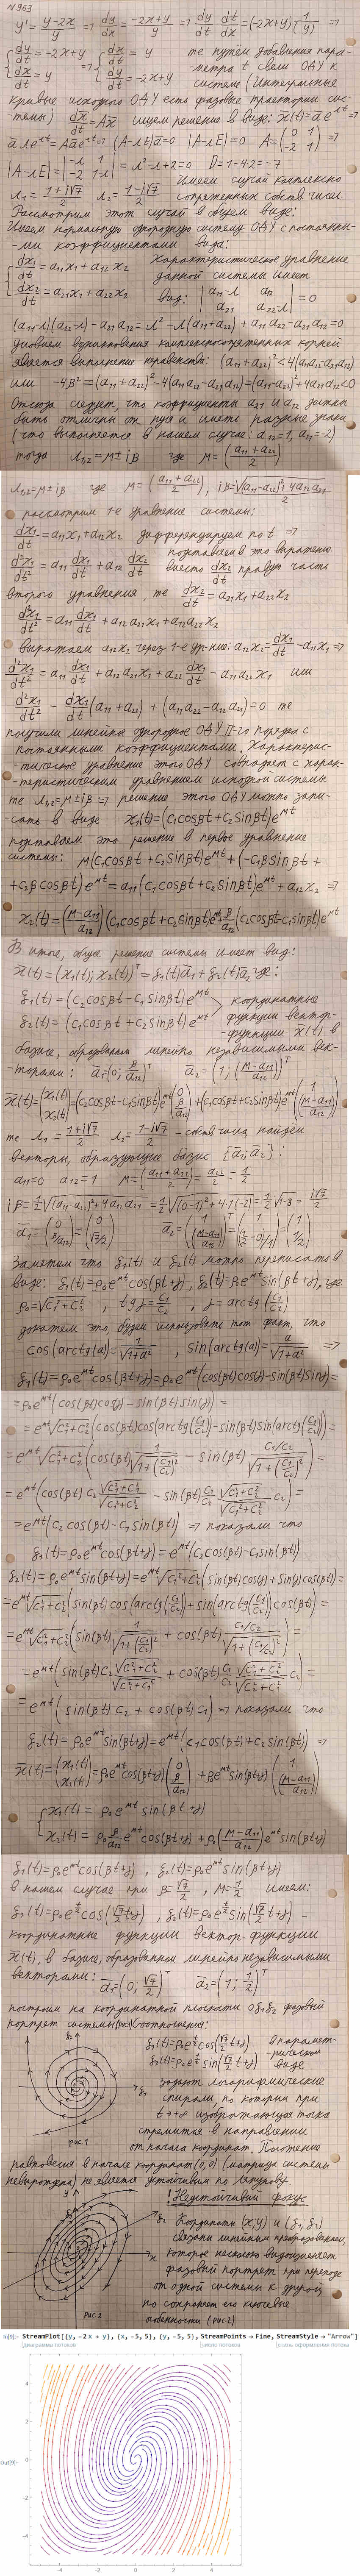 N 963
y' = (y-2x)/y ⇒ dy/dx = (-2x+y)/y ⇒ dy/dt · dt/dx = (-2x+y)(1/(y)) ⇒
{ dy/dt = -2x+y ; dx/dt = y ⇒ { dx/dt = y ; dy/dt = -2x+y те путём добавления пара-
метра t свели ОДУ к
системе (Интегральные
кривые исходного ОДУ есть фазовые траектории сис-
темы) dx̄/dt = Ax̄ ищем решение в виде: x̄(t) = ā e^λt ⇒
āλe^λt = Aāe^λt ⇒ (A-λE)ā = 0 |A-λE| = 0 A = (0 1; -2 1) ⇒
|A-λE| = |-λ 1; -2 1-λ| = λ²-λ+2 = 0 D = 1-4·2 = -7
λ1 = (1+i√7)/2 λ2 = (1-i√7)/2 Имеем случай комплексно
сопряженных собств. чисел
Рассмотрим этот случай в общем виде:
Имеем нормальную однородную систему ОДУ с постоянны-
-ми коэффициентами вида:
{ dx1/dt = a11x1+a12x2 Характеристическое уравнение
dx2/dt = a21x1+a22x2 данной системы имеет
вид: |a11-λ a12; a21 a22-λ| = 0
(a11-λ)(a22-λ)-a21a12 = λ²-λ(a11+a22)+a11a22-a21a12 = 0
условием возникновения комплексносопряженных корней
является выполнение неравенства: (a11+a22)² < 4(a11a22-a21a12)
или -4β² = (a11+a22)²-4(a11a22-a21a12) = (a11-a22)²+4a21a12 < 0
Отсюда следует, что коэффициенты a21 и a12 должны
быть отличны от нуля и иметь разные знаки
(что выполняется в нашем случае: a12=1, a21=-2)
тогда λ1,2 = μ ± iβ где μ = ((a11+a22)/2)
λ1,2 = μ ± iβ где μ = ((a11+a22)/2), iβ = √((a11-a22)²+4a12a21)/2
рассмотрим 1-е уравнение системы:
dx1/dt = a11x1+a12x2 дифференцируем по t ⇒
d²x1/dt² = a11 dx1/dt + a12 dx2/dt подставляем в это выражение
вместо dx2/dt правую часть
второго уравнения, те dx2/dt = a21x1+a22x2
d²x1/dt² = a11 dx1/dt + a12a21x1+a12a22x2
выражаем a12x2 через 1-е ур-ние: a12x2 = dx1/dt - a11x1 ⇒
d²x1/dt² = a11 dx1/dt + a12a21x1 + a22 dx1/dt - a11a22x1 или
d²x1/dt² - dx1/dt (a11+a22) + (a11a22-a12a21) = 0 те
получили линейное однородное ОДУ II-го порядка с
постоянными коэффициентами. Характерис-
-тическое уравнение этого ОДУ совпадает с харак-
-теристическим уравнением исходной системы
те λ1,2 = μ ± iβ ⇒ решение этого ОДУ можно запи-
-сать в виде x1(t) = (c1cosβt+c2sinβt)e^μt
подставляем это решение в первое уравнение
системы: μ(c1cosβt+c2sinβt)e^μt+(-c1βsinβt+
+c2βcosβt)e^μt = a11(c1cosβt+c2sinβt)e^μt+a12x2 ⇒
x2(t) = ((μ-a11)/a12)(c1cosβt+c2sinβt)e^μt + β/a12 (c2cosβt-c1sinβt)e^μt
В итоге, общее решение системы имеет вид:
x̄(t) = (x1(t); x2(t))^T = ξ1(t)ā1+ξ2(t)ā2 где:
ξ1(t) = (c2cosβt-c1sinβt)e^μt координатные
ξ2(t) = (c1cosβt+c2sinβt)e^μt функции вектор-
-функции x̄(t) в
базисе, образованном линейно независимыми век-
-торами: ā1 = (0; β/a12)^T ā2 = (1; ((μ-a11)/a12))^T
x̄(t) = (x1(t); x2(t)) = (c2cosβt-c1sinβt)e^μt (0; β/a12) + (c1cosβt+c2sinβt)e^μt (1; ((μ-a11)/a12))
те λ1 = (1+i√7)/2 λ2 = (1-i√7)/2 - собств. числа, найдем
векторы, образующие базис {ā1; ā2}:
a11=0 a12=1 μ = ((a11+a22)/2) = a22/2 = 1/2
iβ = 1/2 √((a11-a22)²+4a12a21) = 1/2 √((0-1)²+4·1·(-2)) = 1/2 √(1-8) = i√7/2
ā1 = (0; β/a12) = (0; √7/2) ā2 = (1; ((μ-a11)/a12)) = (1; (1/2-0)/1) = (1; 1/2)
Заметим что ξ1(t) и ξ2(t) можно переписать в
виде: ξ1(t) = ρ0e^μt cos(βt+γ), ξ2(t) = ρ0e^μt sin(βt+γ), где
ρ0 = √(c1²+c2²), tgγ = c1/c2, γ = arctg(c1/c2)
докажем это, будем использовать тот факт, что
cos(arctg(a)) = 1/√(1+a²), sin(arctg(a)) = a/√(1+a²) ⇒
ξ1(t) = ρ0e^μt cos(βt+γ) = ρ0e^μt (cos(βt)cosγ-sin(βt)sinγ) =
= ρ0e^μt (cos(βt)cosγ - sin(βt)sinγ) =
= e^μt √(c1²+c2²) (cos(βt)cos(arctg(c1/c2))-sin(βt)sin(arctg(c1/c2))) =
= e^μt √(c1²+c2²) (cos(βt) 1/√(1+(c1/c2)²) - sin(βt) (c1/c2)/√(1+(c1/c2)²)) =
= e^μt (cos(βt) c2 √(c1²+c2²)/√(c1²+c2²) - sin(βt) c1/c2 √(c1²+c2²)/√(c1²+c2²) c2) =
= e^μt (c2cos(βt)-c1sin(βt)) ⇒ показали что
ξ1(t) = ρ0e^μt cos(βt+γ) = e^μt (c2cos(βt)-c1sin(βt))
ξ2(t) = ρ0e^μt sin(βt+γ) = e^μt √(c1²+c2²) (sin(βt)cosγ+sinγcos(βt)) =
= e^μt √(c1²+c2²) (sin(βt)cos(arctg(c1/c2))+sin(arctg(c1/c2))cos(βt)) =
= e^μt √(c1²+c2²) (sin(βt) 1/√(1+(c1/c2)²) + cos(βt) (c1/c2)/√(1+(c1/c2)²)) =
= e^μt (sin(βt) c2 √(c1²+c2²)/√(c2²+c1²) + cos(βt) c1/c2 √(c1²+c2²)/√(c1²+c2²) c2) =
= e^μt (sin(βt)c2 + cos(βt)c1) ⇒ показали что
ξ2(t) = ρ0e^μt sin(βt+γ) = e^μt (c1cos(βt)+c2sin(βt)) ⇒
x̄(t) = (x1(t); x2(t)) = ρ0e^μt cos(βt+γ) (0; β/a12) + ρ0e^μt sin(βt+γ) (1; ((μ-a11)/a12))
{ x1(t) = ρ0e^μt sin(βt+γ)
x2(t) = ρ0 β/a12 e^μt cos(βt+γ) + ρ0((μ-a11)/a12)e^μt sin(βt+γ)
ξ1(t) = ρ0e^μt cos(βt+γ), ξ2(t) = ρ0e^μt sin(βt+γ)
в нашем случае при β = √7/2, μ = 1/2 имеем:
ξ1(t) = ρ0e^(t/2) cos(√7/2 t+γ), ξ2(t) = ρ0e^(t/2) sin(√7/2 t+γ) -
координатные функции вектор-функции
x̄(t), в базисе, образованном линейно независимыми
векторами: ā1 = (0; √7/2)^T ā2 = (1; 1/2)^T
построим на координатной плоскости 0ξ1ξ2 фазовый
портрет системы (рис1) Соотношения:
ξ1(t) = ρ0e^(t/2) cos(√7/2 t+γ) в парамет-
ξ2(t) = ρ0e^(t/2) sin(√7/2 t+γ) -рическом
виде
задают логарифмические
спирали, по которым при
t→+∞ изображающая точка
стремится в направлении
от начала координат. Положение
ξ2
ξ1
рис.1
равновесия в начале координат (0,0) (матрица системы
невырождена) не является устойчивым по Ляпунову.
! Неустойчивый фокус
Координаты (x,y) и (ξ1,ξ2)
связаны линейным преобразованием,
которое несколько видоизменяет
фазовый портрет при переходе
от одной системы к другой,
но сохраняет его ключевые
особенности (рис2)
y
ξ1
x
рис.2
In[9]:= StreamPlot[{y, -2 x + y}, {x, -5, 5}, {y, -5, 5}, StreamPoints → Fine, StreamStyle → "Arrow"]
диаграмма потоков число потоков стиль оформления потока
Out[9]=
4
2
0
-2
-4
-4 -2 0 2 4